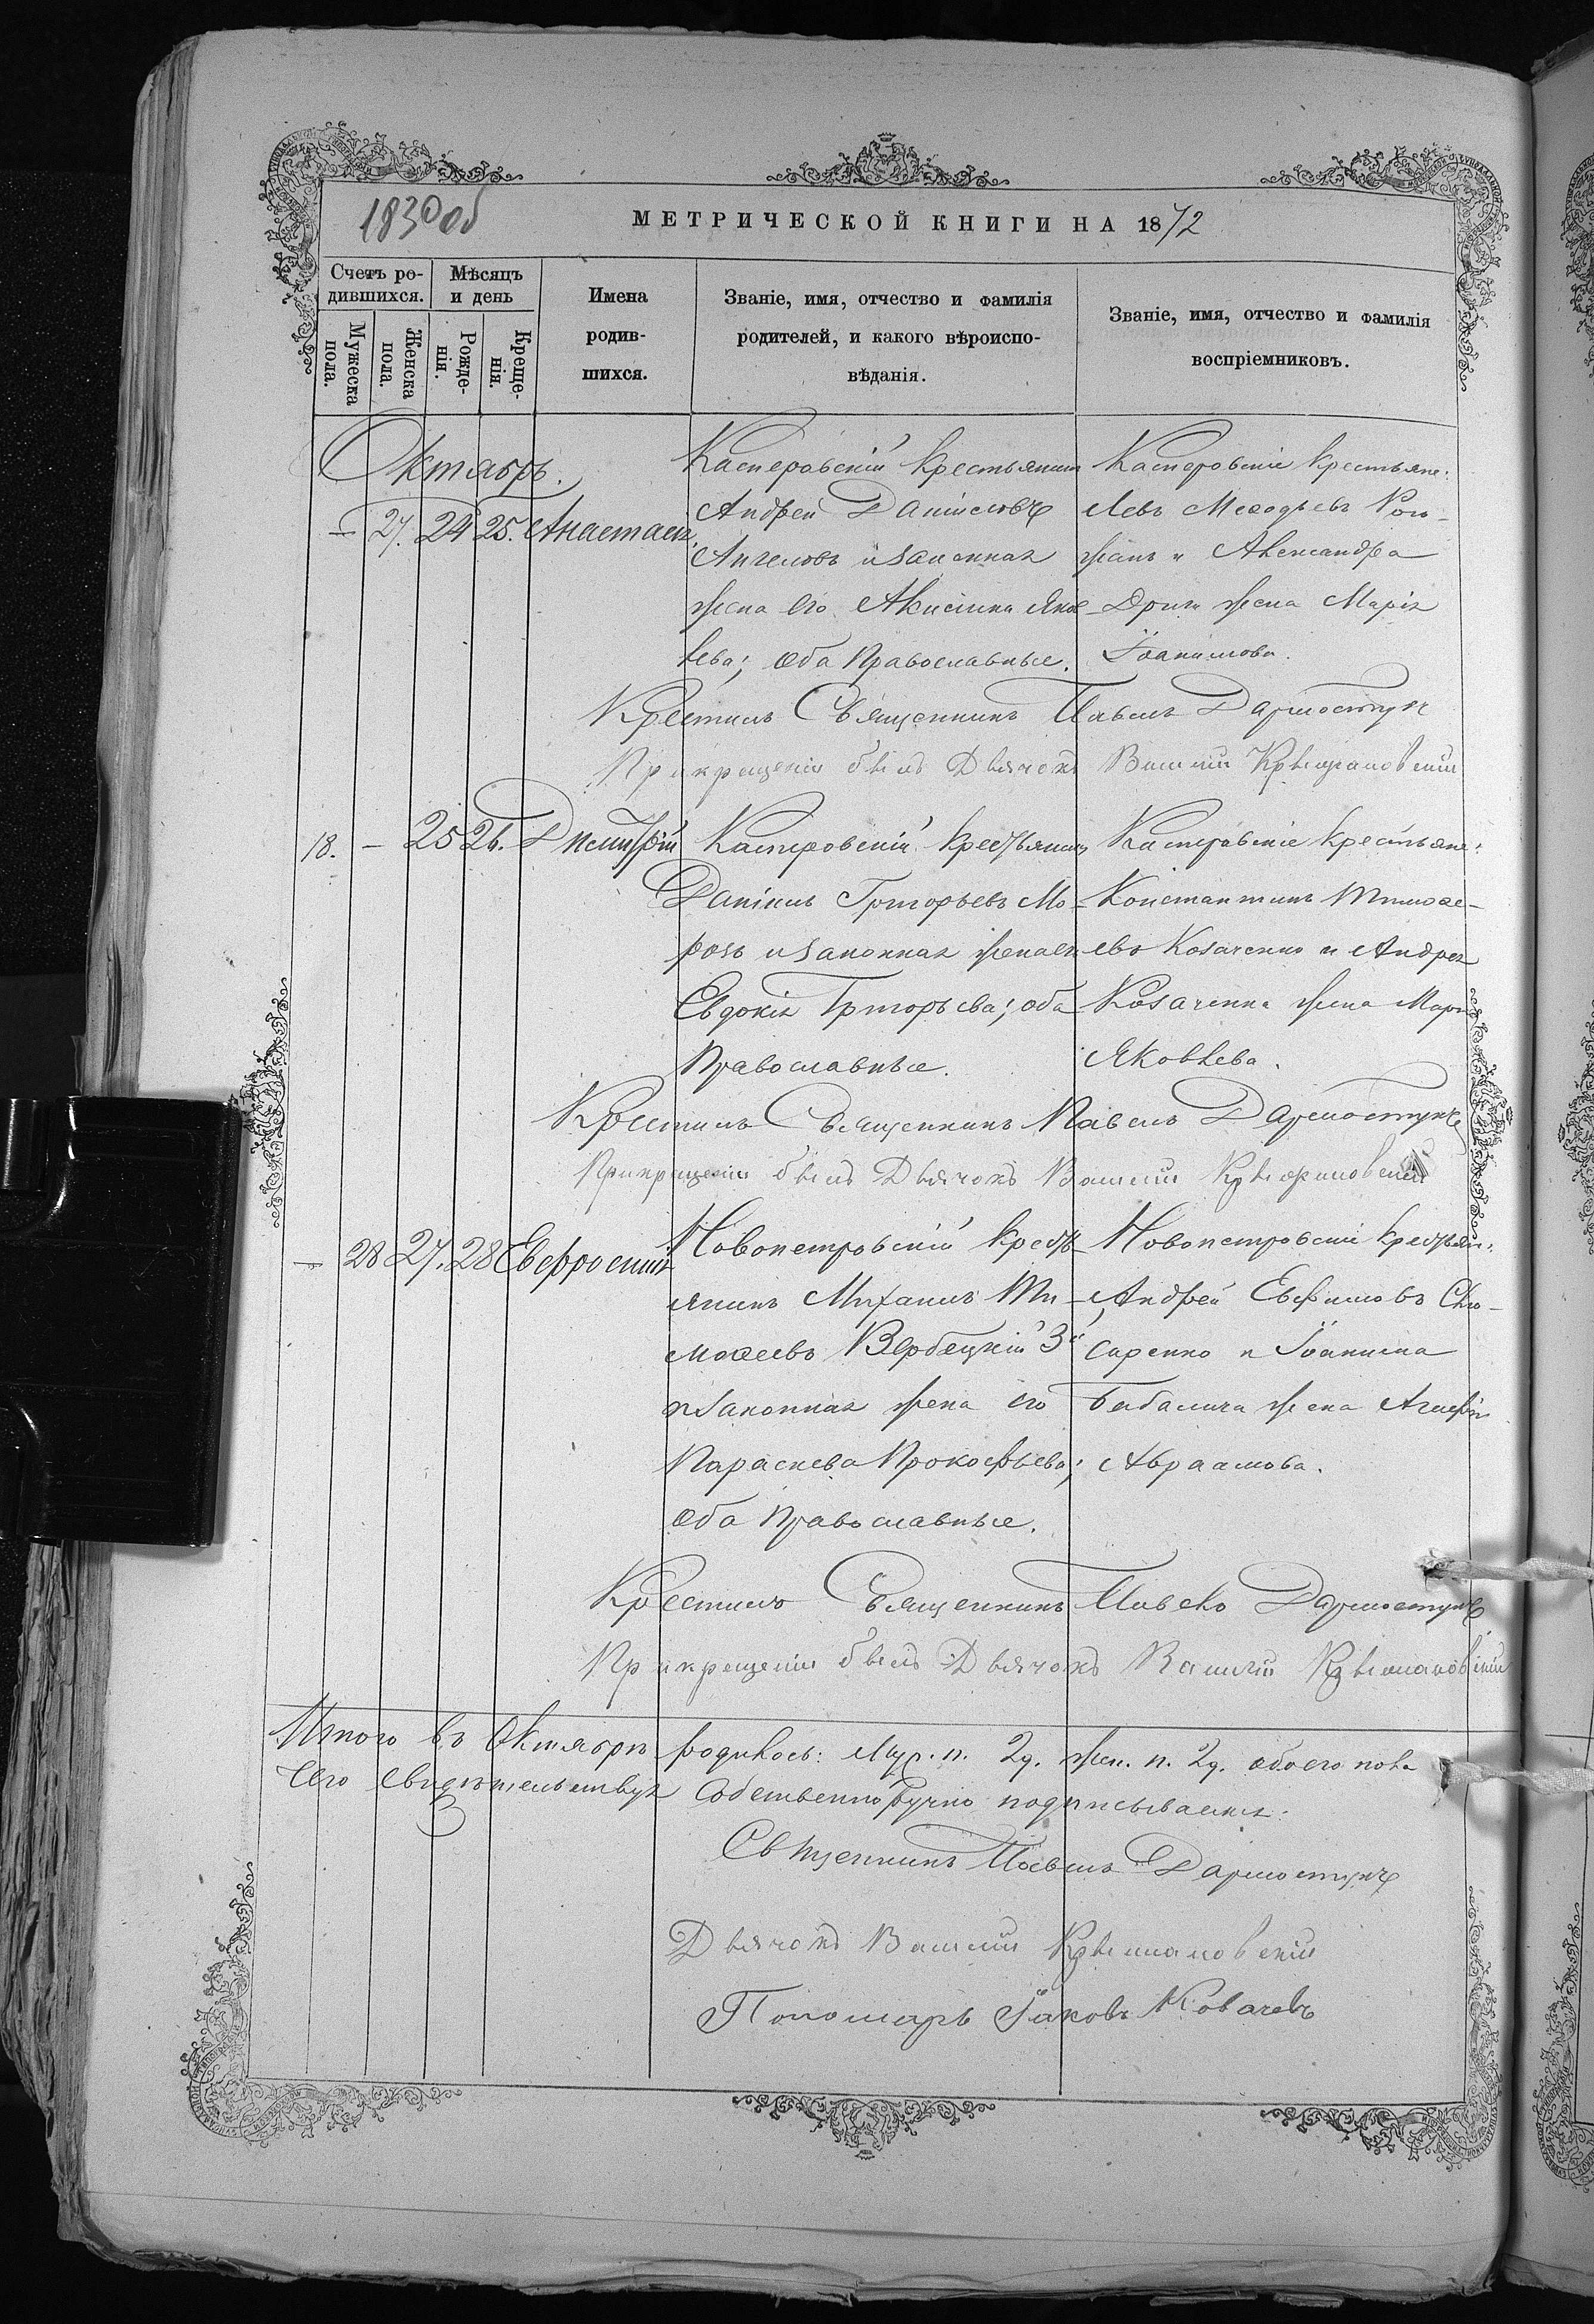 1830 об
МЕТРИЧЕСКОЙ КНИГИ НА 1872
Счетъ родившихся.
Мѣсяцъ и день
Мужеска пола.
Женска пола.
Рожденія.
Крещенія.
Имена родившихся.
Званіе, имя, отчество и фамилія родителей, и какого вѣроисповѣданія.
Званіе, имя, отчество и фамилія воспріемниковъ.
Октябрь.
— 27. 24 25. Анастасія.
Касперовскій крестьянинъ
Андрей Даніиловъ
Ангеловъ и законная
жена его Акилина Яков-
лева; оба Православные.
Касперовскіе крестьяне:
Левъ Меѳодьевъ
и Александра
жена Марія
Іоаннова.
Крестилъ Священникъ Павелъ Дармостукъ
При крещеніи былъ Дьячокъ Василій
18. — 25 26. Димитрій
Касперовскій крестьянинъ
Даніилъ Григорьевъ Мо-
розъ и законная жена его
Евдокія Григорьева; оба
Православные.
Касперовскіе крестьяне:
Константинъ Тимоѳе-
евъ Козаченко и Андрея
Козаченка жена Марія
Яковлева.
Крестилъ Священникъ Павелъ Дармостукъ
При крещеніи былъ Дьячокъ Василій
— 28 27. 28 Евфросинія
Новопетровскій кресть-
янинъ Михаилъ Ти-
моѳеевъ Вербецкій 3й
и законная жена его
Параскева Прокофьева;
оба Православные.
Новопетровскіе крестьян:
Андрей Евфимовъ Слю-
саренко и Іоаникія
жена
Авраамова.
Крестилъ Священникъ Павелъ Дармостукъ
При крещеніи былъ Дьячокъ Василій
Итого въ Октябрѣ родилось: Муж. п. 2д. жен. п. 2д. обоего пола
Сего свидѣтельствуя собственноручно подписываемся:
Священникъ Павелъ Дармостукъ
Дьячокъ Василій
Пономарь Іаковъ Ковачевъ